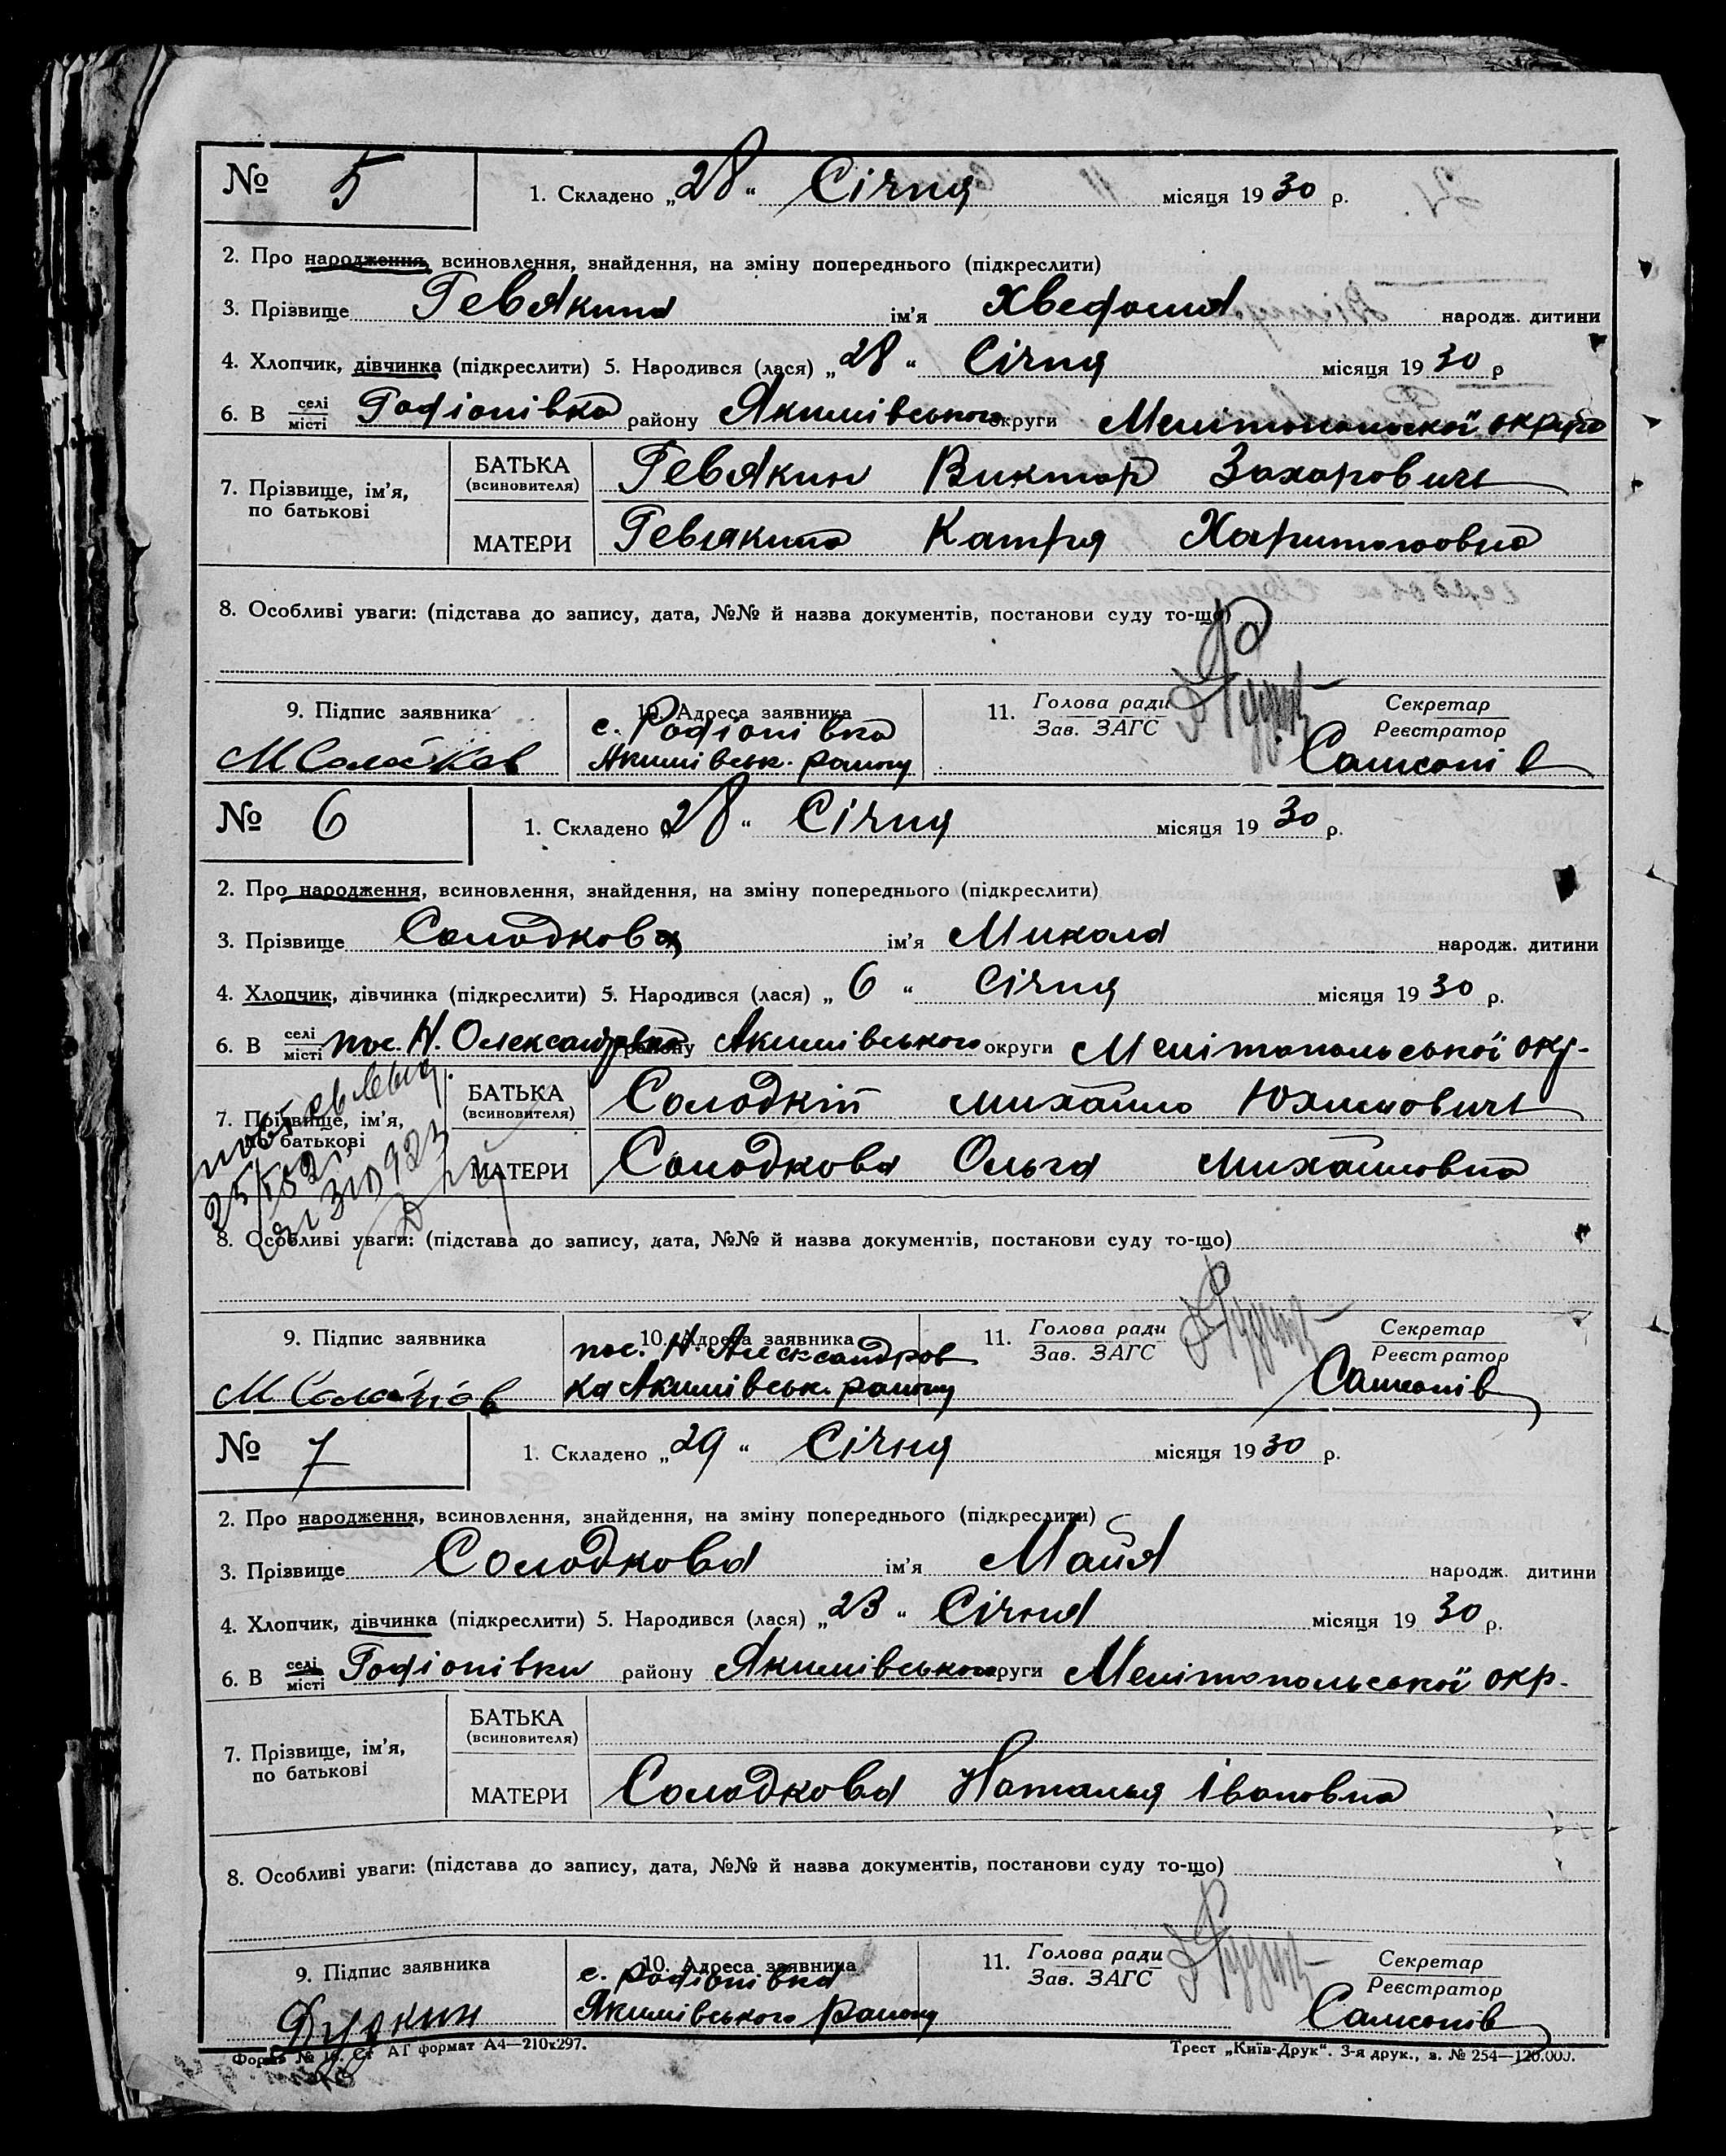 № 5 1. Складено „28“ Січня місяця 1930 р.
2. Про народження, всиновлення, знайдення, на зміну попереднього (підкреслити)
3. Прізвище Ревякина ім'я Хведосия народж. дитини
4. Хлопчик, дівчинка (підкреслити) 5. Народився (лася) „28“ Січня місяця 1930 р
6. В селі місті Родіонівка району Якимівського округи Мелітопольскої округа
7. Прізвище, ім'я, по батькові
БАТЬКА (всиновителя) Ревякин Виктор Захарович
МАТЕРИ Ревякина Катря Харитоновна
8. Особливі уваги: (підстава до запису, дата, №№ й назва документів, постанови суду то-що)
9. Підпис заявника 10. Адреса заявника 11. Голова ради Секретар
Зав. ЗАГС Реєстратор
с. Родіонівка
Якимівськ. району
№ 6 1. Складено „28“ Січня місяця 1930 р.
2. Про народження, всиновлення, знайдення, на зміну попереднього (підкреслити)
3. Прізвище Солодков ім'я Микола народж. дитини
4. Хлопчик, дівчинка (підкреслити) 5. Народився (лася) „6“ Січня місяця 1930 р.
6. В селі місті пос. Н. Олександрівка району Якимівського округи Мелітопольської окр.
7. Прізвище, ім'я, по батькові
БАТЬКА (всиновителя) Солодкій Михайло Юхимович
МАТЕРИ Солодкова Ольга Михайловна
8. Особливі уваги: (підстава до запису, дата, №№ й назва документів, постанови суду то-що)
9. Підпис заявника 10. Адреса заявника 11. Голова ради Секретар
Зав. ЗАГС Реєстратор
пос. Н. Александров
ка Якимівськ. району
№ 7 1. Складено „29“ Січня місяця 1930 р.
2. Про народження, всиновлення, знайдення, на зміну попереднього (підкреслити)
3. Прізвище Солодкова ім'я Майя народж. дитини
4. Хлопчик, дівчинка (підкреслити) 5. Народився (лася) „23“ Січня місяця 1930 р.
6. В селі місті Родіонівки району Якимівського округи Мелітопольської окр.
7. Прізвище, ім'я, по батькові
БАТЬКА (всиновителя)
МАТЕРИ Солодкова Наталья Івановна
8. Особливі уваги: (підстава до запису, дата, №№ й назва документів, постанови суду то-що)
9. Підпис заявника 10. Адреса заявника 11. Голова ради Секретар
Зав. ЗАГС Реєстратор
с. Родіонівка
Якимівського району
Форма № 10. Ст АГ формат А4—210х297. Трест „Київ-Друк“. 3-я друк., з. № 254—120.000.